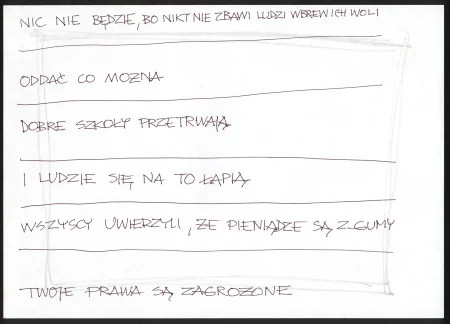 NIC NIE BĘDZIE, BO NIKT NIE ZBAWI LUDZI WBREW ICH WOLI
ODDAĆ CO MOŻNA
DOBRE SZKOŁY PRZETRWAJĄ
I LUDZIE SIĘ NA TO ŁAPIĄ
WSZYSCY UWIERZYLI, ŻE PIENIĄDZE SĄ Z GUMY
TWOJE PRAWA SĄ ZAGROŻONE